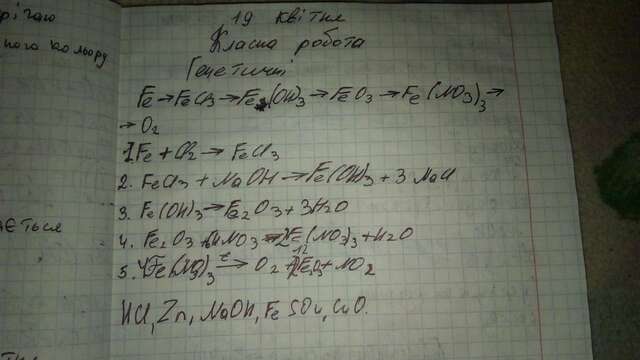 рігаю
ного кольору
ається
19 квітня
Класна робота
Генетичні
Fe → FeCl3 → Fe(OH)3 → FeO3 → Fe(NO3)3 →
→ O2
1. Fe + Cl2 → FeCl3
2. FeCl3 + NaOH → Fe(OH)3 + 3 NaCl
3. Fe(OH)3 → Fe2O3 + 3H2O
4. Fe2O3 + 6HNO3 → 2Fe(NO3)3 + H2O
5. 4Fe(NO3)3 →t O2 + 2Fe2O3 + 12NO2
HCl, Zn, NaOH, FeSO4, CuO.